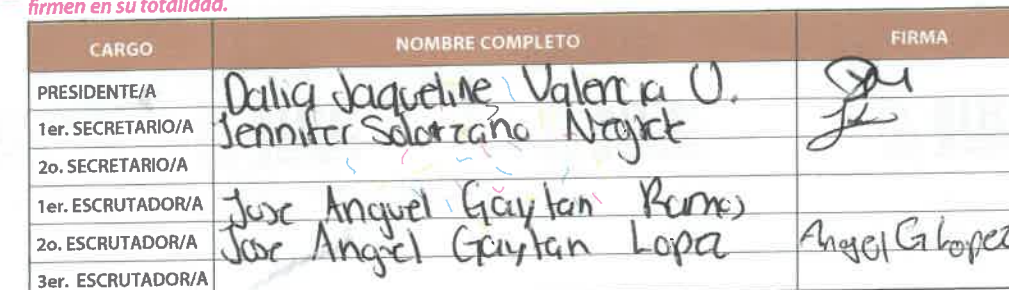 firmen en su totalidad.
CARGO NOMBRE COMPLETO FIRMA
PRESIDENTE/A Dalia Jaqueline Valencia U.
1er. SECRETARIO/A Jennifer Solorzano Negrete
2o. SECRETARIO/A
1er. ESCRUTADOR/A Jose Anguel Gaytan Ramos
2o. ESCRUTADOR/A Jose Angel Gaytan Lopez Angel G Lopez
3er. ESCRUTADOR/A